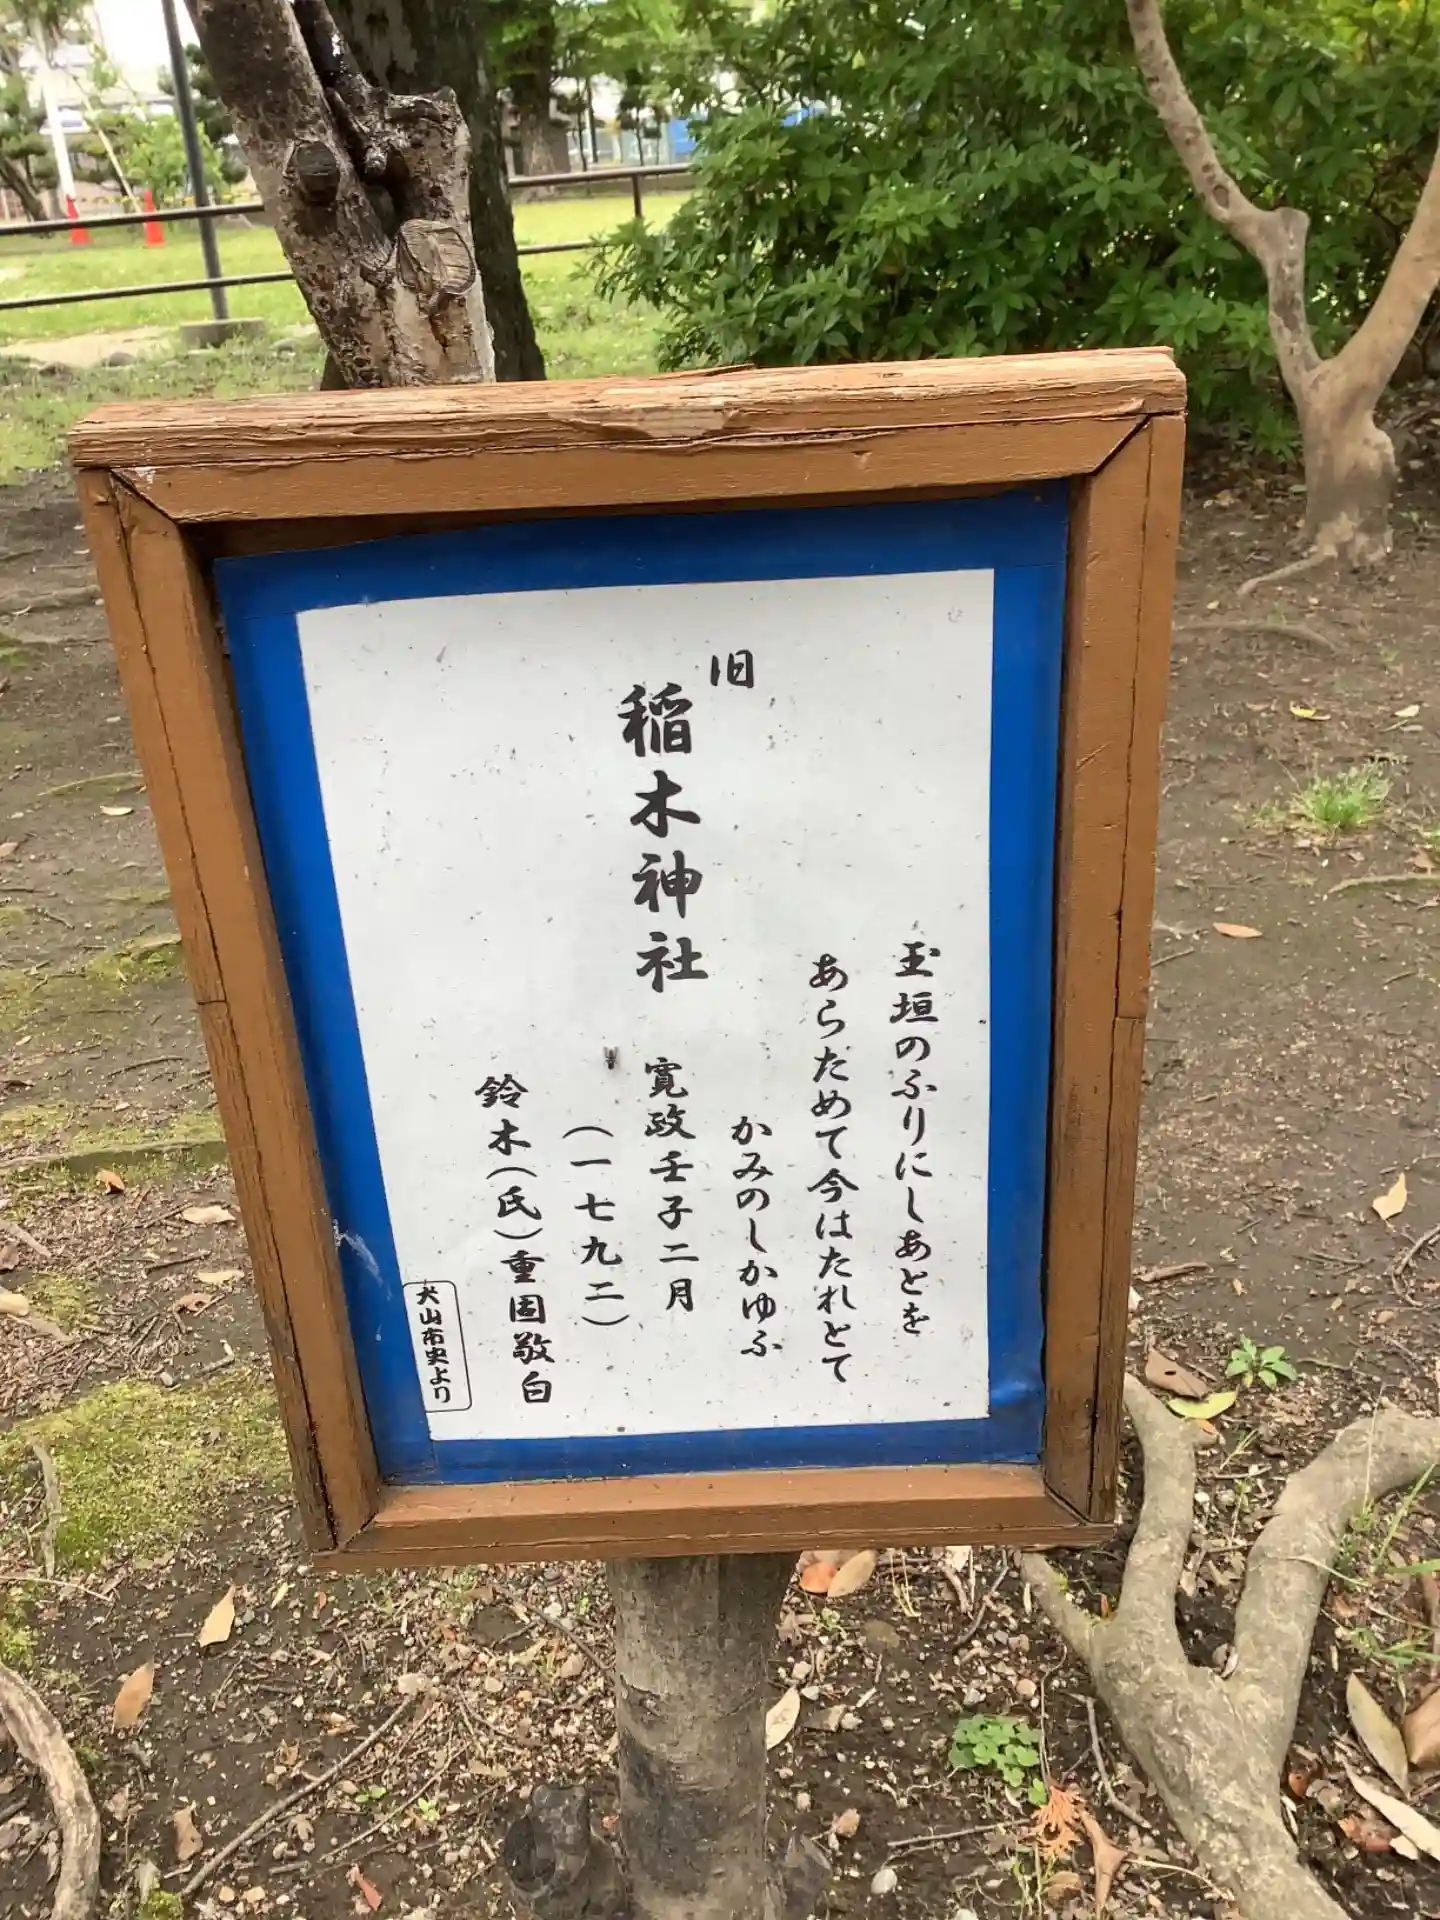 玉垣のふりにしあとを
あらためて今はたれとて
かみのしかゆふ
旧
稲木神社
寛政壬子二月
(一七九二)
鈴木(氏)重固敬白
犬山市史より